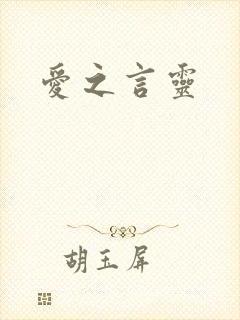 愛之言靈
胡玉屏